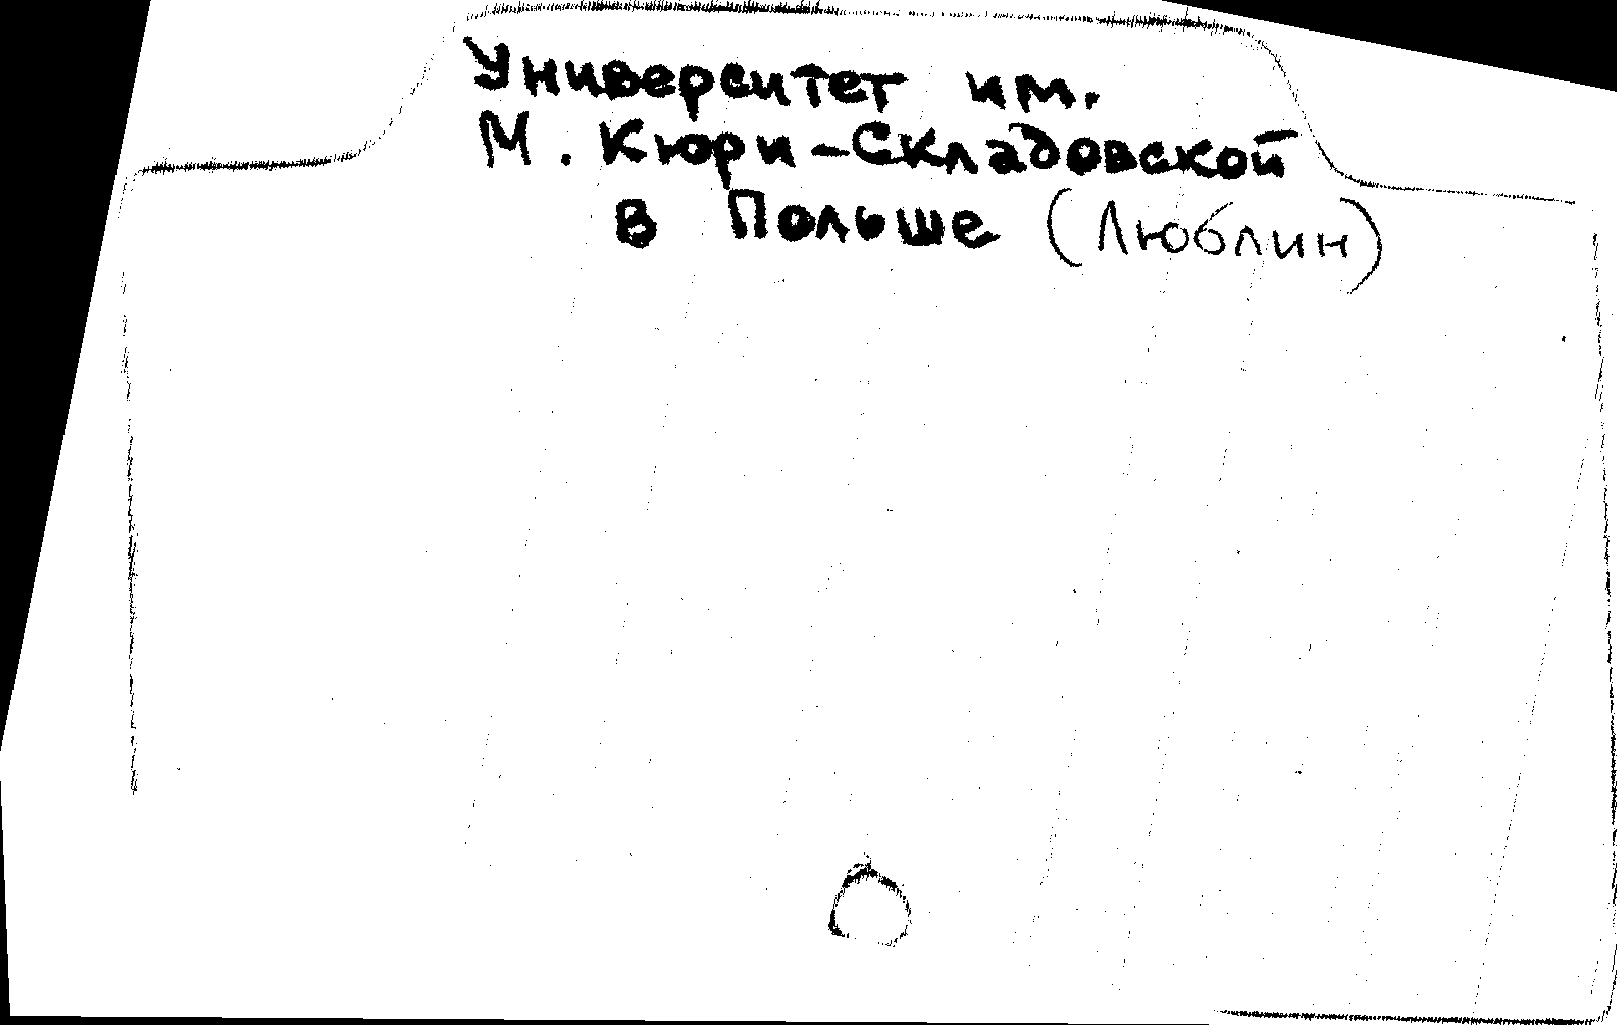 Университет им.
М. Кюри-Складовской
в Польше (Люблин)